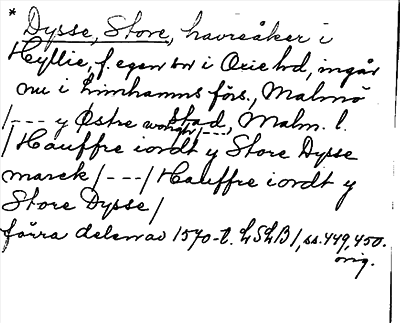 * Dysse, Store, havreåker i
Hyllie, f. egen sn i Oxie hd, ingår
nu i Limhamns förs., Malmö
stad, Malm. l.
/--- y Østre wongh /---/
/Hauffre iordt y Store Dysse
marck/---/Hauffre iordt y
Store Dysse/
förra delen av 1570-t. LSLB1, ss. 449, 450.
orig.